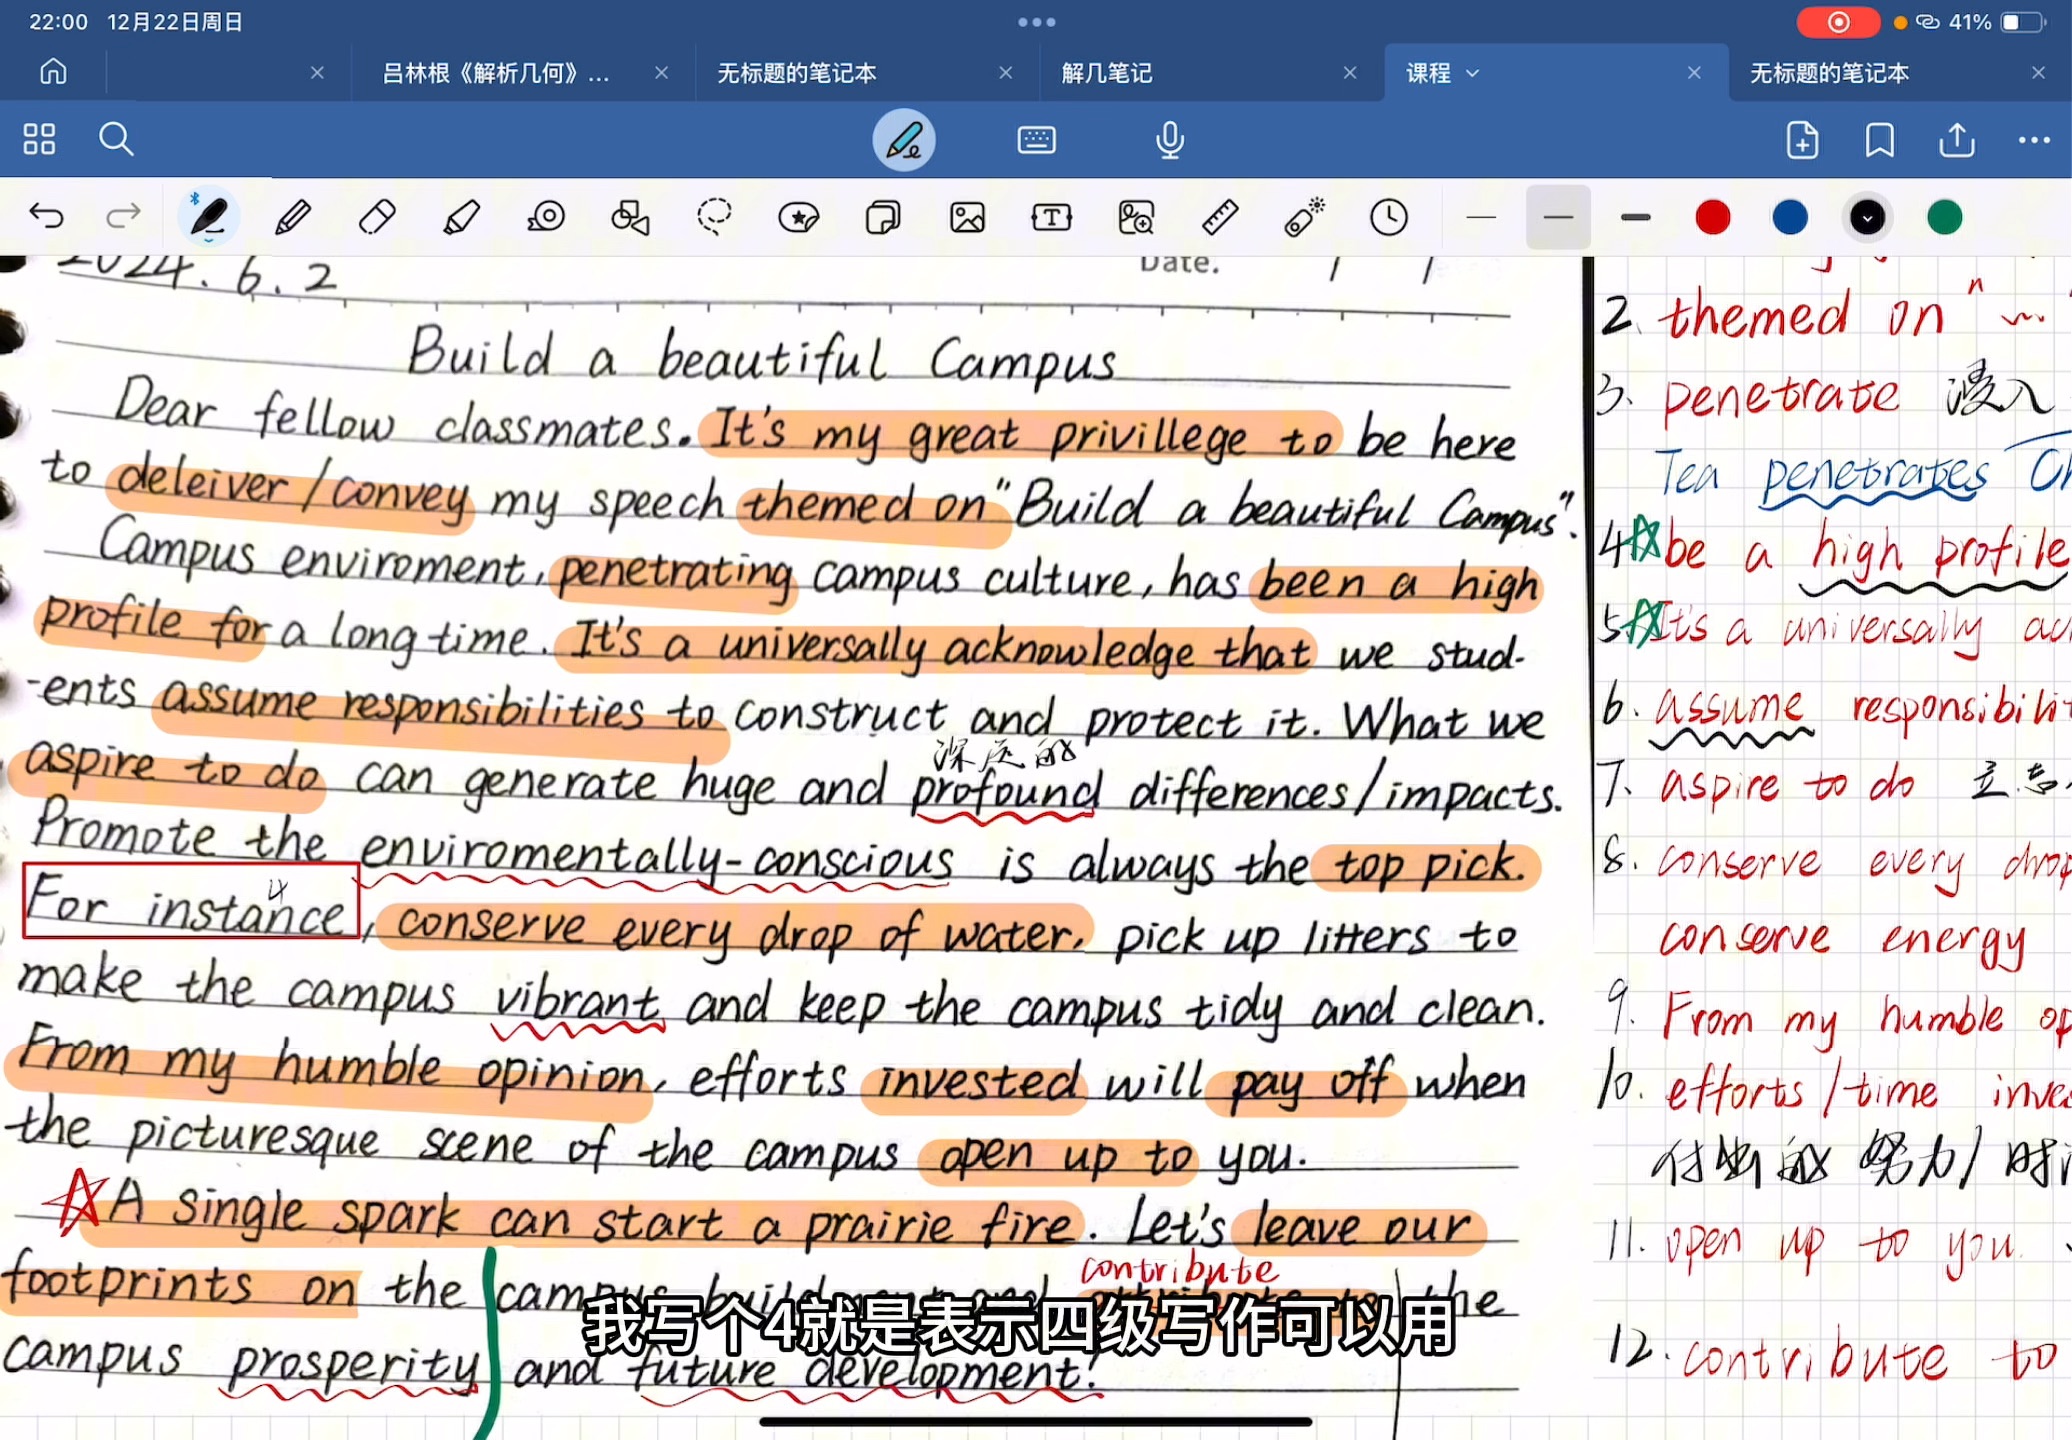 22:00 12月22日周日
41%
吕林根《解析几何》...
无标题的笔记本
解几笔记
课程
无标题的笔记本
2024.6.2
Date.
Build a beautiful Campus
Dear fellow classmates. It's my great privillege to be here
to deleiver/convey my speech themed on "Build a beautiful Campus".
Campus enviroment, penetrating campus culture, has been a high
profile for a long time. It's a universally acknowledge that we stud-
-ents assume responsibilities to construct and protect it. What we
深远的
aspire to do can generate huge and profound differences/impacts.
Promote the enviromentally-conscious is always the top pick.
4
For instance, conserve every drop of water, pick up litters to
make the campus vibrant and keep the campus tidy and clean.
From my humble opinion, efforts invested will pay off when
the picturesque scene of the campus open up to you.
A single spark can start a prairie fire. Let's leave our
contribute
footprints on the campus the
我写个4就是表示四级写作可以用
campus prosperity and future development!
2. themed on "
3. penetrate 浸入
Tea penetrates
4. be a high profile
5. It's a universally
6. assume
7. aspire to do
8. conserve every
conserve energy
9. From my humble
10. efforts/time
付出的努力/
11. open up to you
12. contribute to